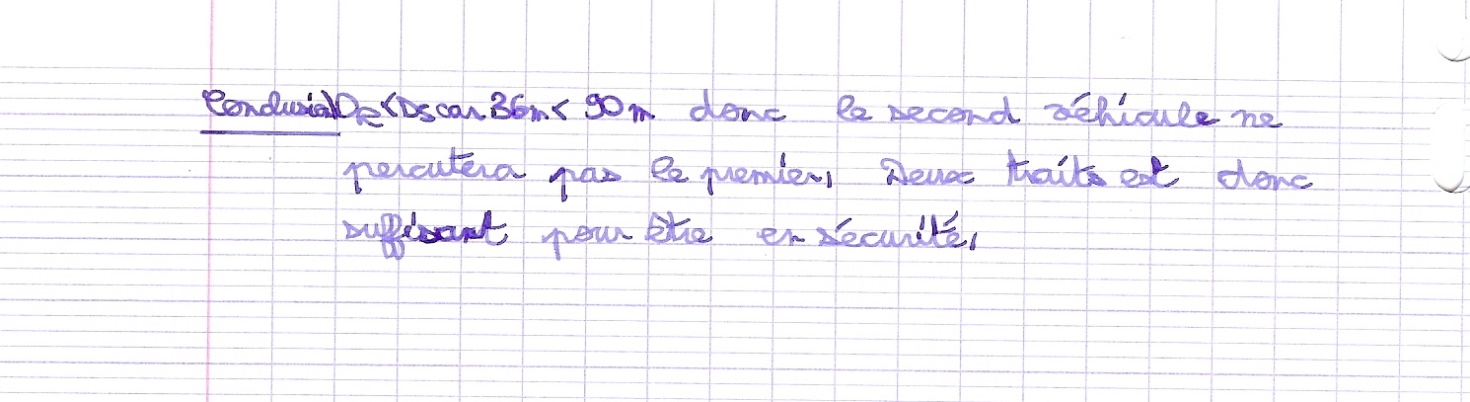 Conclusion D_R < Ds car 36m < 90m donc le second véhicule ne
percutera pas le premier. Deux traits est donc
suffisant pour être en sécurité.